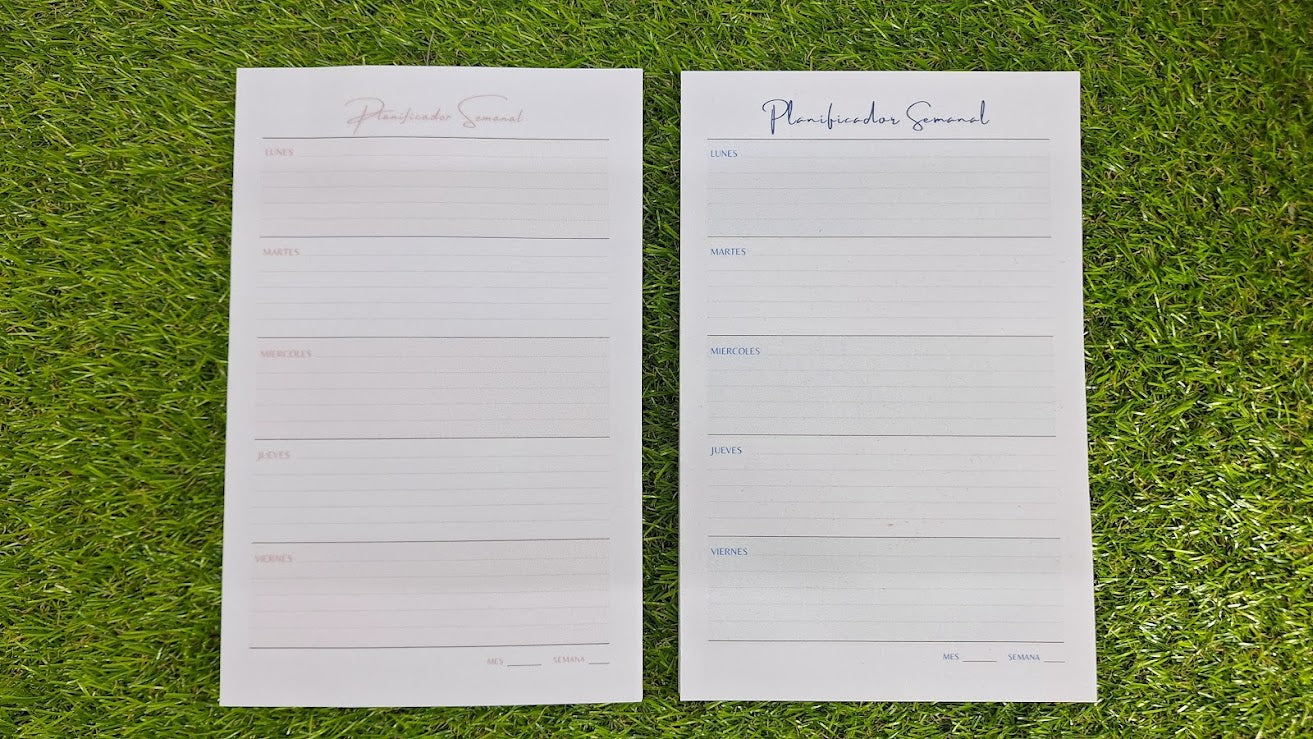 Planificador Semanal
LUNES
MARTES
MIERCOLES
JUEVES
VIERNES
MES ______ SEMANA ____
Planificador Semanal
LUNES
MARTES
MIERCOLES
JUEVES
VIERNES
MES ______ SEMANA ____